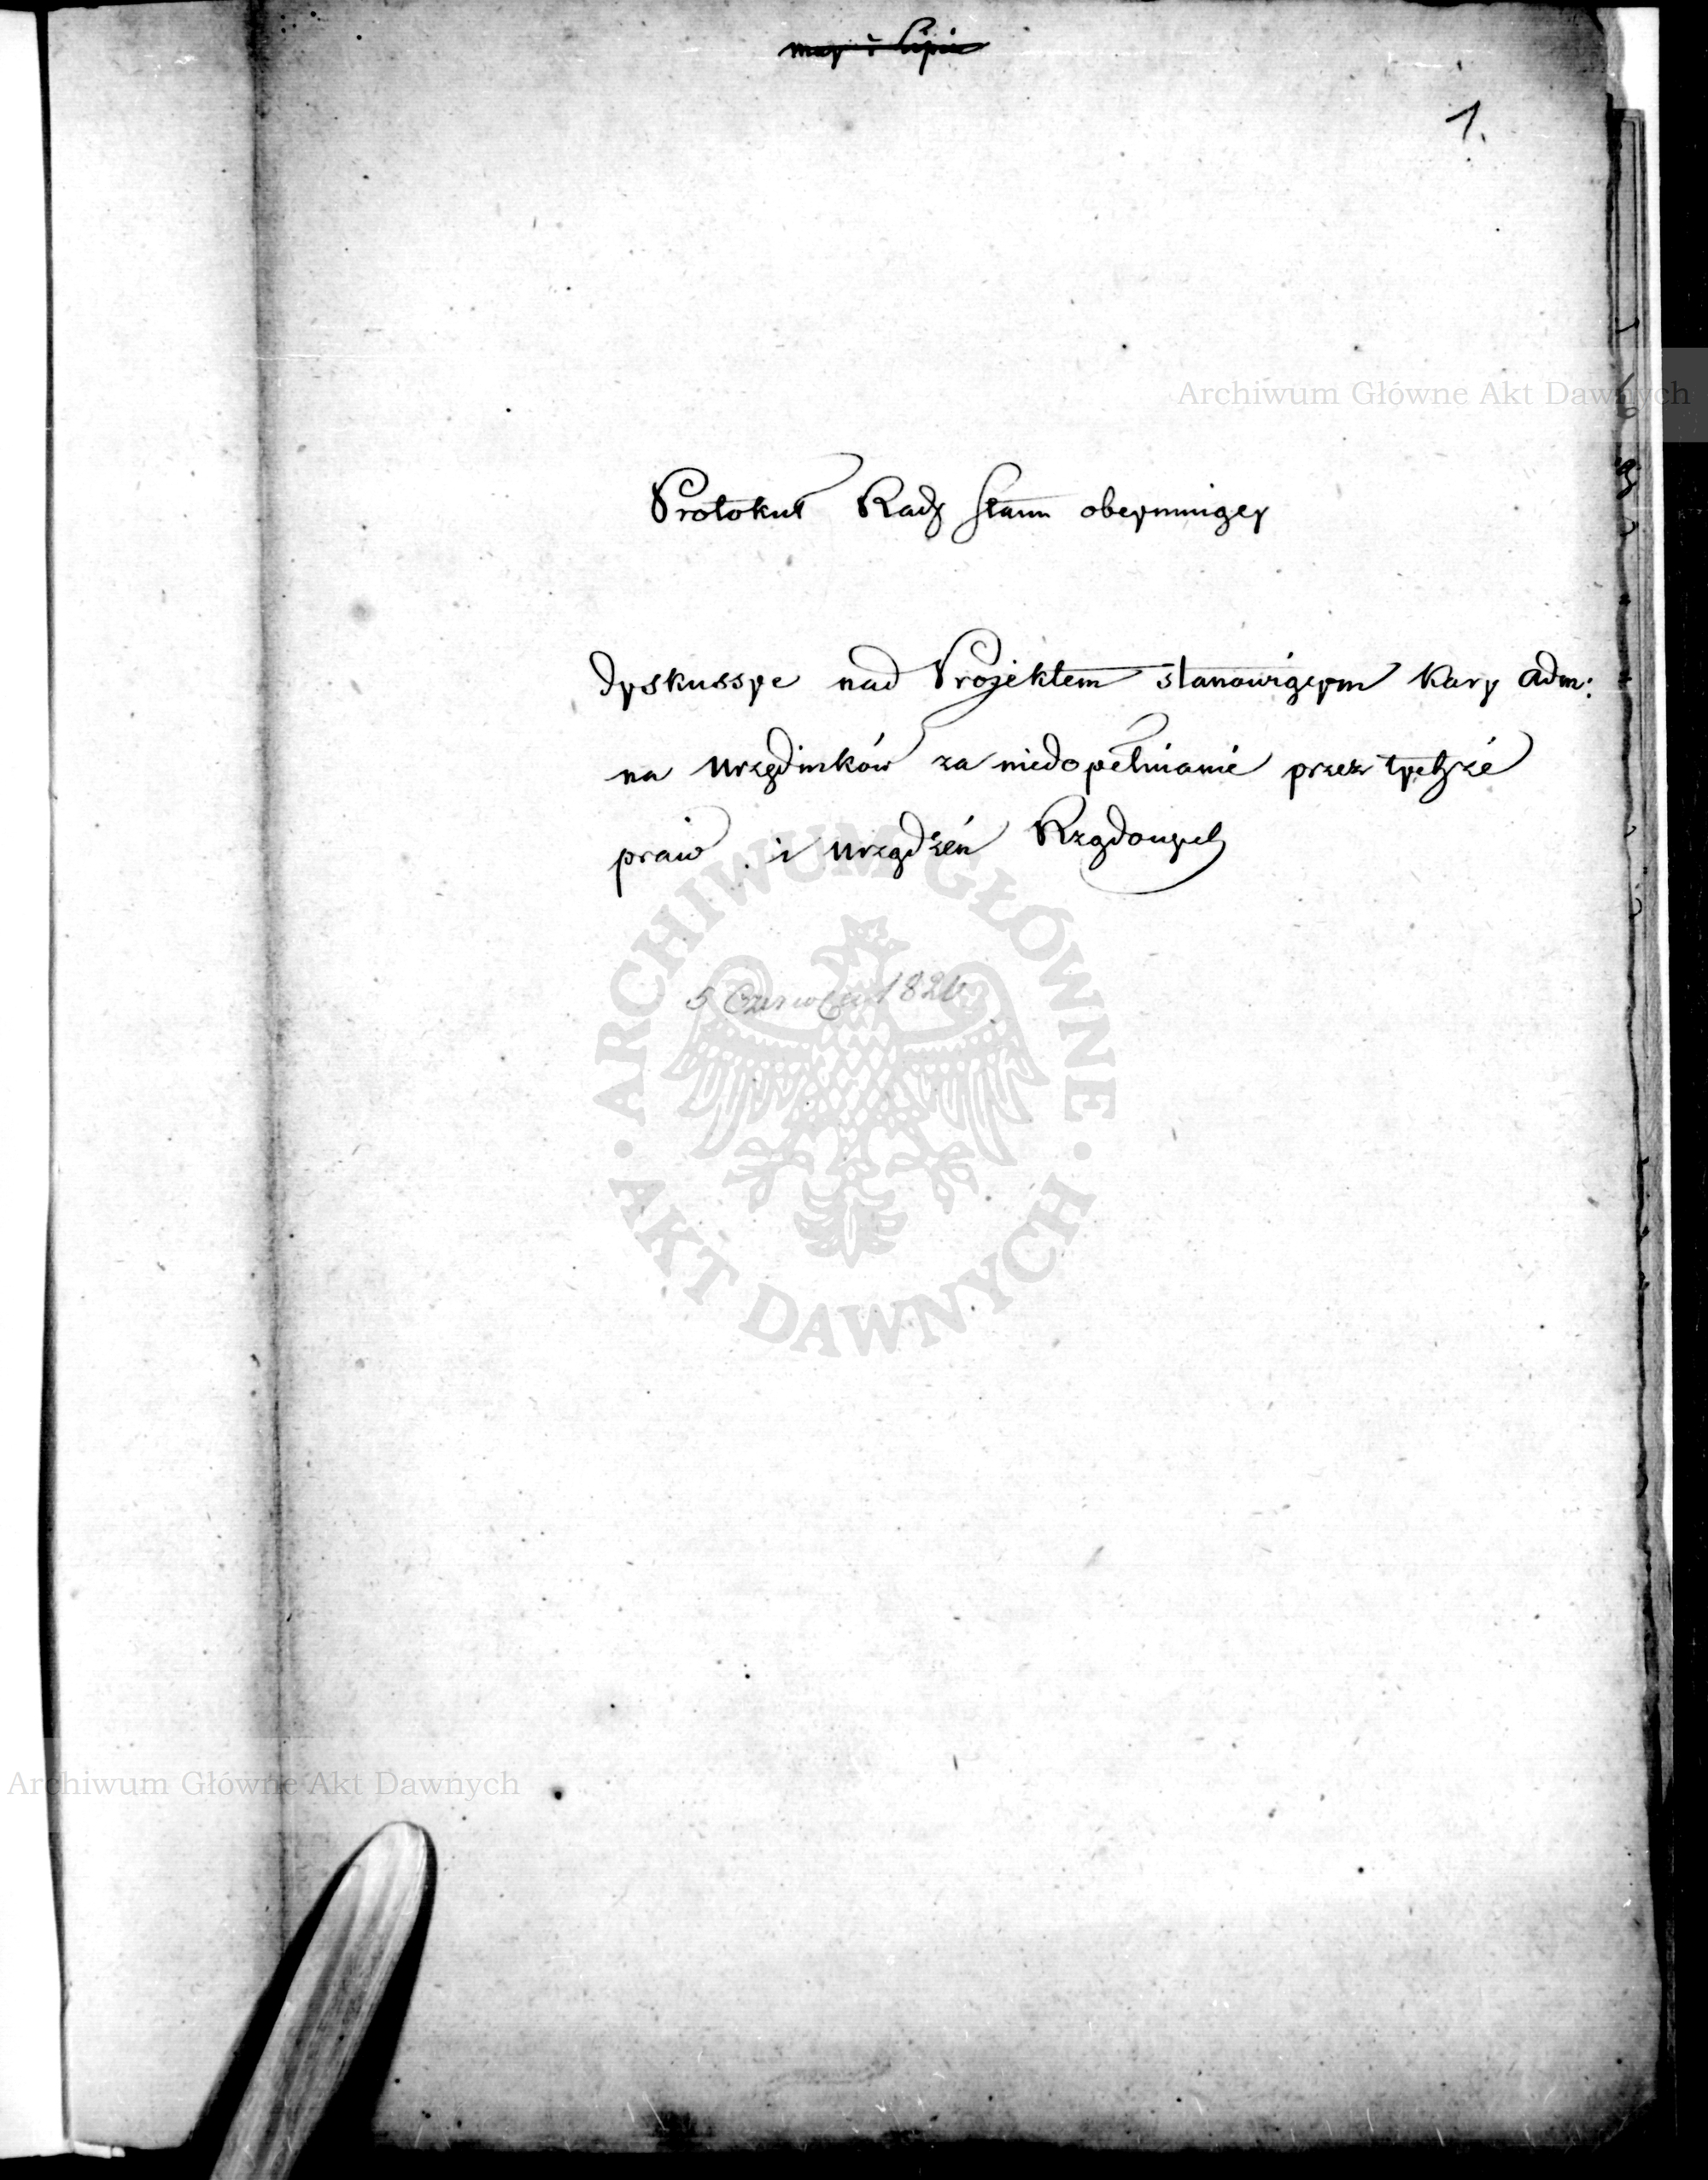 may i Lipiec
1.
Archiwum Główne Akt Dawnych
Protokuł Rady Stanu obeymuiący
dyskussye nad Projektem stanowiącym kary adm:
na urzędników za niedopełnianie przez tychże
praw i urządzeń Rządowych
5 Czerwca 1826
ARCHIWUM GŁÓWNE AKT DAWNYCH
Archiwum Główne Akt Dawnych